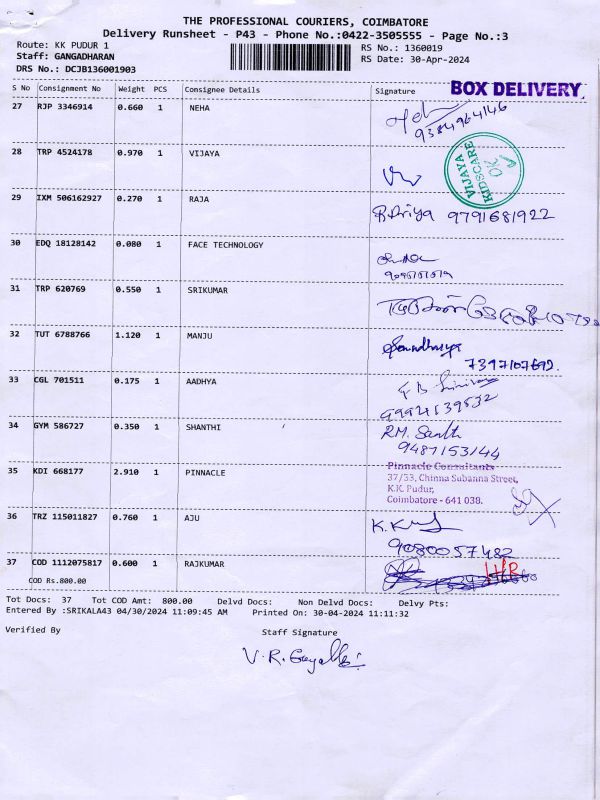 THE PROFESSIONAL COURIERS, COIMBATORE
Delivery Runsheet - P43 - Phone No.:0422-3505555 - Page No.:3
Route: KK PUDUR 1
RS No.: 1360019
Staff: GANGADHARAN
RS Date: 30-Apr-2024
DRS No.: DCJB136001903
BOX DELIVERY.
S No Consignment No Weight PCS Consignee Details Signature
27 RJP 3346914 0.660 1 NEHA
9384964146
28 TRP 4524178 0.970 1 VIJAYA
VIJAYA KIDSCARE
OK
29 IXM 506162927 0.270 1 RAJA
9791681922
30 EDQ 18128142 0.080 1 FACE TECHNOLOGY
31 TRP 620769 0.550 1 SRIKUMAR
32 TUT 6788766 1.120 1 MANJU
33 CGL 701511 0.175 1 AADHYA
34 GYM 586727 0.350 1 SHANTHI
R.M. Santhi
9487153144
35 KDI 668177 2.910 1 PINNACLE
Pinnacle Consultants
37/33, Chinna Subanna Street,
K.K. Pudur,
Coimbatore - 641 038.
36 TRZ 115011827 0.760 1 AJU
9080057482
37 COD 1112075817 0.600 1 RAJKUMAR
COD Rs.800.00
Tot Docs: 37 Tot COD Amt: 800.00 Delvd Docs: Non Delvd Docs: Delvy Pts:
Entered By :SRIKALA43 04/30/2024 11:09:45 AM Printed On: 30-04-2024 11:11:32
Verified By
Staff Signature